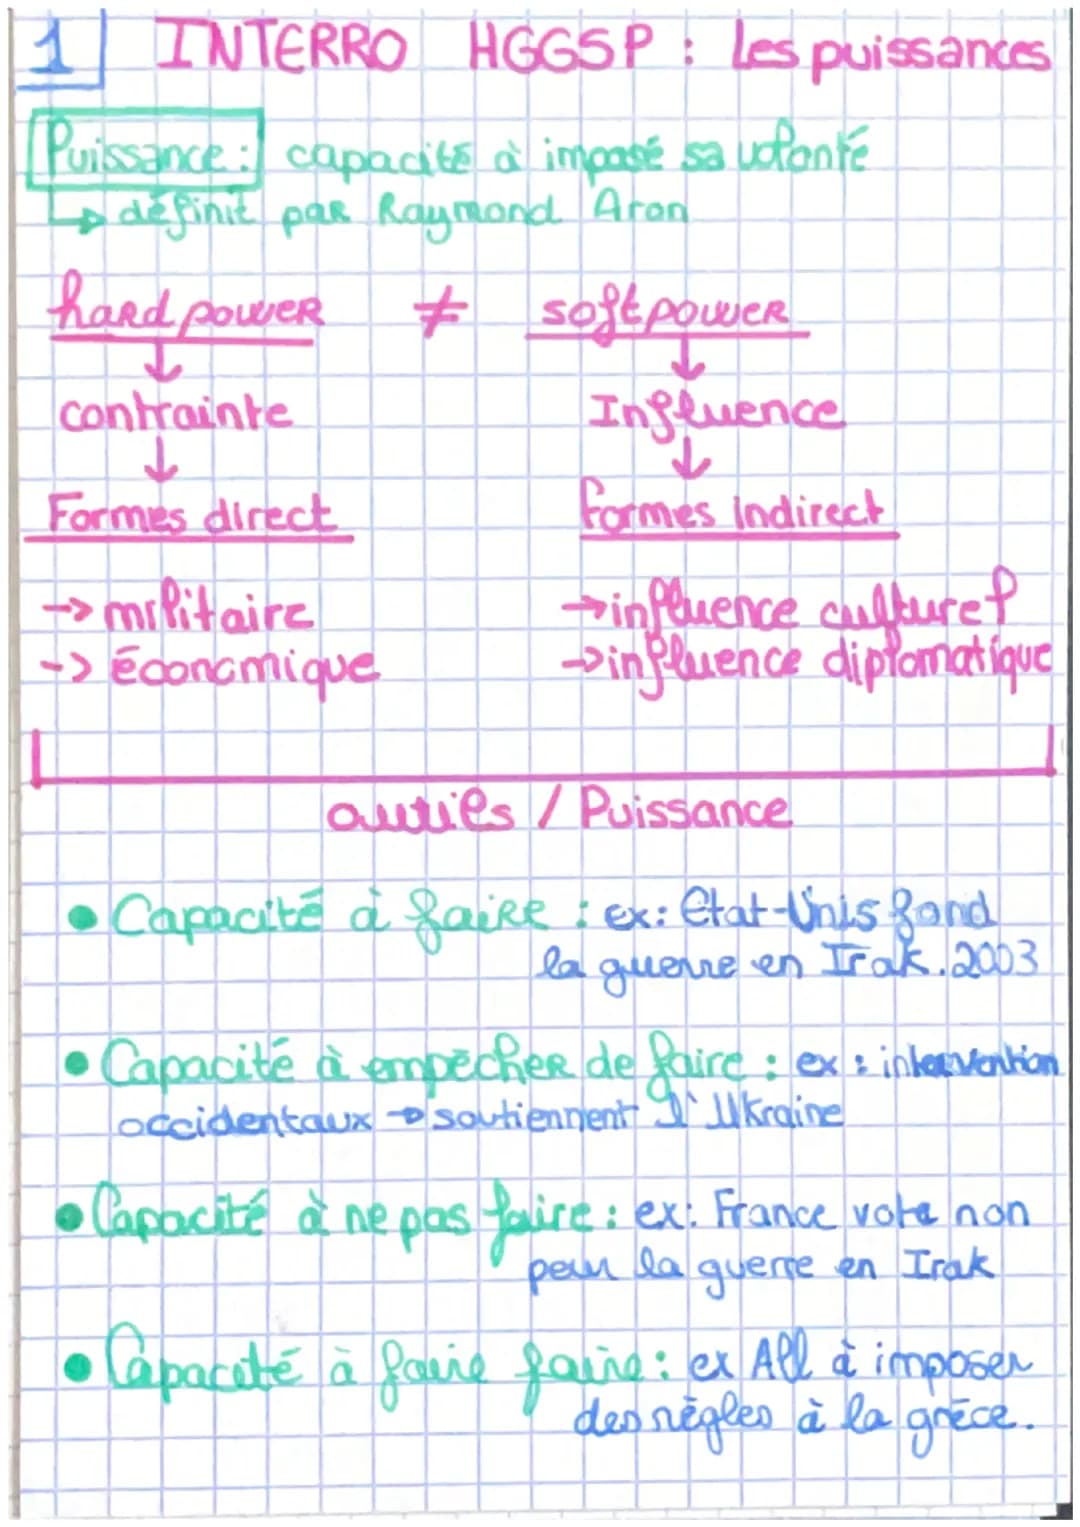 1 INTERRO HGGSP : Les puissances
Puissance : capacité à imposé sa volonté
↳ définit par Raymond Aron
hard power ≠ soft power
↓ ↓
contrainte Influence
↓ ↓
Formes direct formes indirect
-> militaire → influence culturel
-> économique → influence diplomatique
outils / Puissance
• Capacité à faire : ex: État-Unis fond
la guerre en Irak. 2003
• Capacité à empêcher de faire : ex : intervention
occidentaux → soutiennent l'Ukraine
• Capacité à ne pas faire : ex: France vote non
pour la guerre en Irak
• Capacité à faire faire : ex All à imposer
des règles à la grèce.